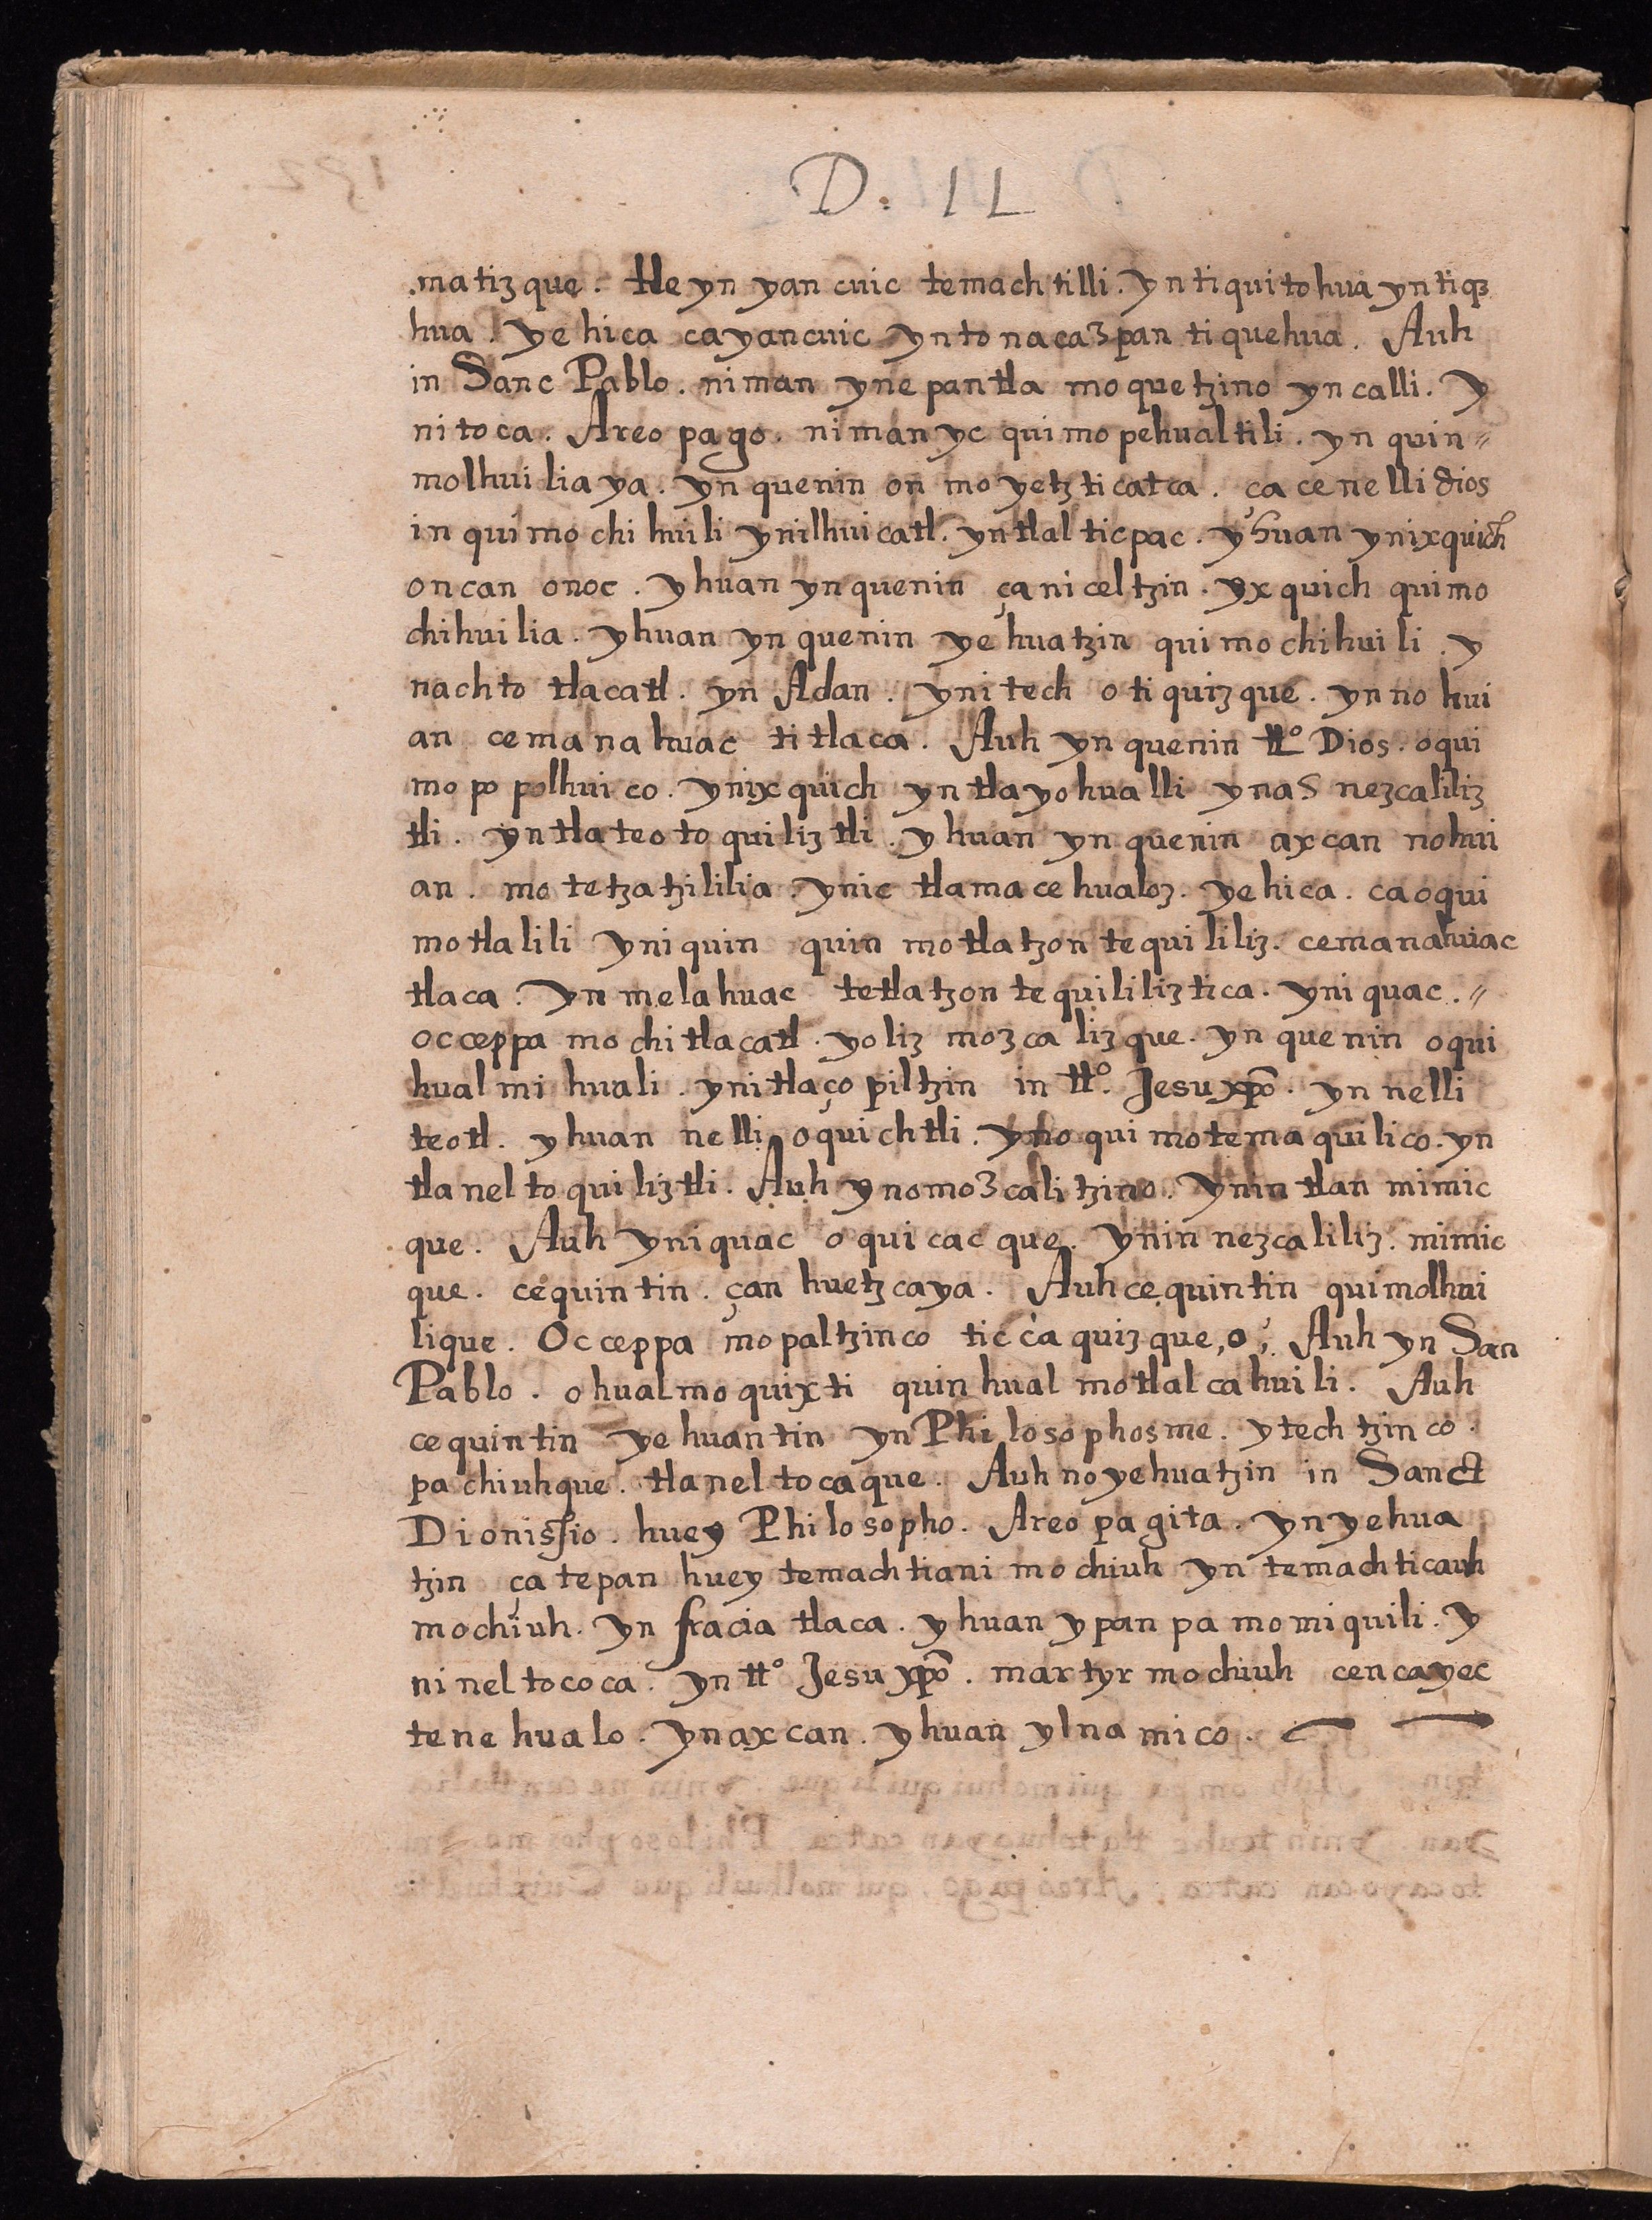 D. IL
matizque. tle yn yancuic temachtilli. yn tiquitohua yn tiq̃
hua. yehica ca yancuic yn tonacazpan tiquehua. Auh
in Sanc Pablo. niman ynepantla moquetzino yn calli. y
nitoca. Areopago. niman yc quimopehualtili. yn quin=
molhuiliaya. yn quenin on moyetzticatca. ca ce nelli dios
in quimochihuili ynilhuicatl. yn tlalticpac. yhuan ynixquich
oncan onoc. yhuan yn quenin çaniceltzin. yxquich quimo
chihuilia. yhuan yn quenin yehuatzin quimochihuili. y
nachto tlacatl. yn Adan. ynitech otiquizque. yn nohui
an cemanahuac titlaca. Auh yn quenin tt.º Dios. oqui
mopopolhuico. ynixquich yn tlayohualli yn aS nezcaliliz
tli. yn tlateotoquiliztli. yhuan yn quenin axcan nohui
an. motetzatzililia. ynic tlamacehualoz. yehica. ca oqui
motlalili yniquin quinmotlatzontequililiz. cemanahuac
tlaca. yn melahuac tetlatzontequililiztica. yniquac.=
occeppa mochitlacatl. yoliz mozcalizque. yn quenin oqui
hualmihuali. ynitlaçopiltzin in tt.º Jesu xpõ. yn nelli
teotl. yhuan nelli oquichtli. yn oquimotemaquilico. yn
tlaneltoquiliztli. Auh ynomozcalitzino. ynintlan mimic
que. Auh yniquac oquicacque. ynin nezcaliliz. mimic
que. cequintin. çan huetzcaya. Auh cequintin quimolhui
lique. Occeppa mopaltzinco ticcaquizque, o, Auh yn San
Pablo. ohualmoquixti quinhualmotlalcahuili. Auh
cequintin yehuantin yn Philosophosme. ytechtzinco.
pachiuhque. tlaneltocaque. Auh no yehuatzin in Sanct
Dionissio. huey Philosopho. Areopagita. yn yehua
tzin çatepan huey temachtiani mochiuh yn temachticauh
mochiuh. yn fracia tlaca. yhuan ypanpa momiquili. y
nineltococa. yn tt.º Jesu xpõ. martyr mochiuh cenca yec
tenehualo. yn axcan. yhuan ylnamico.